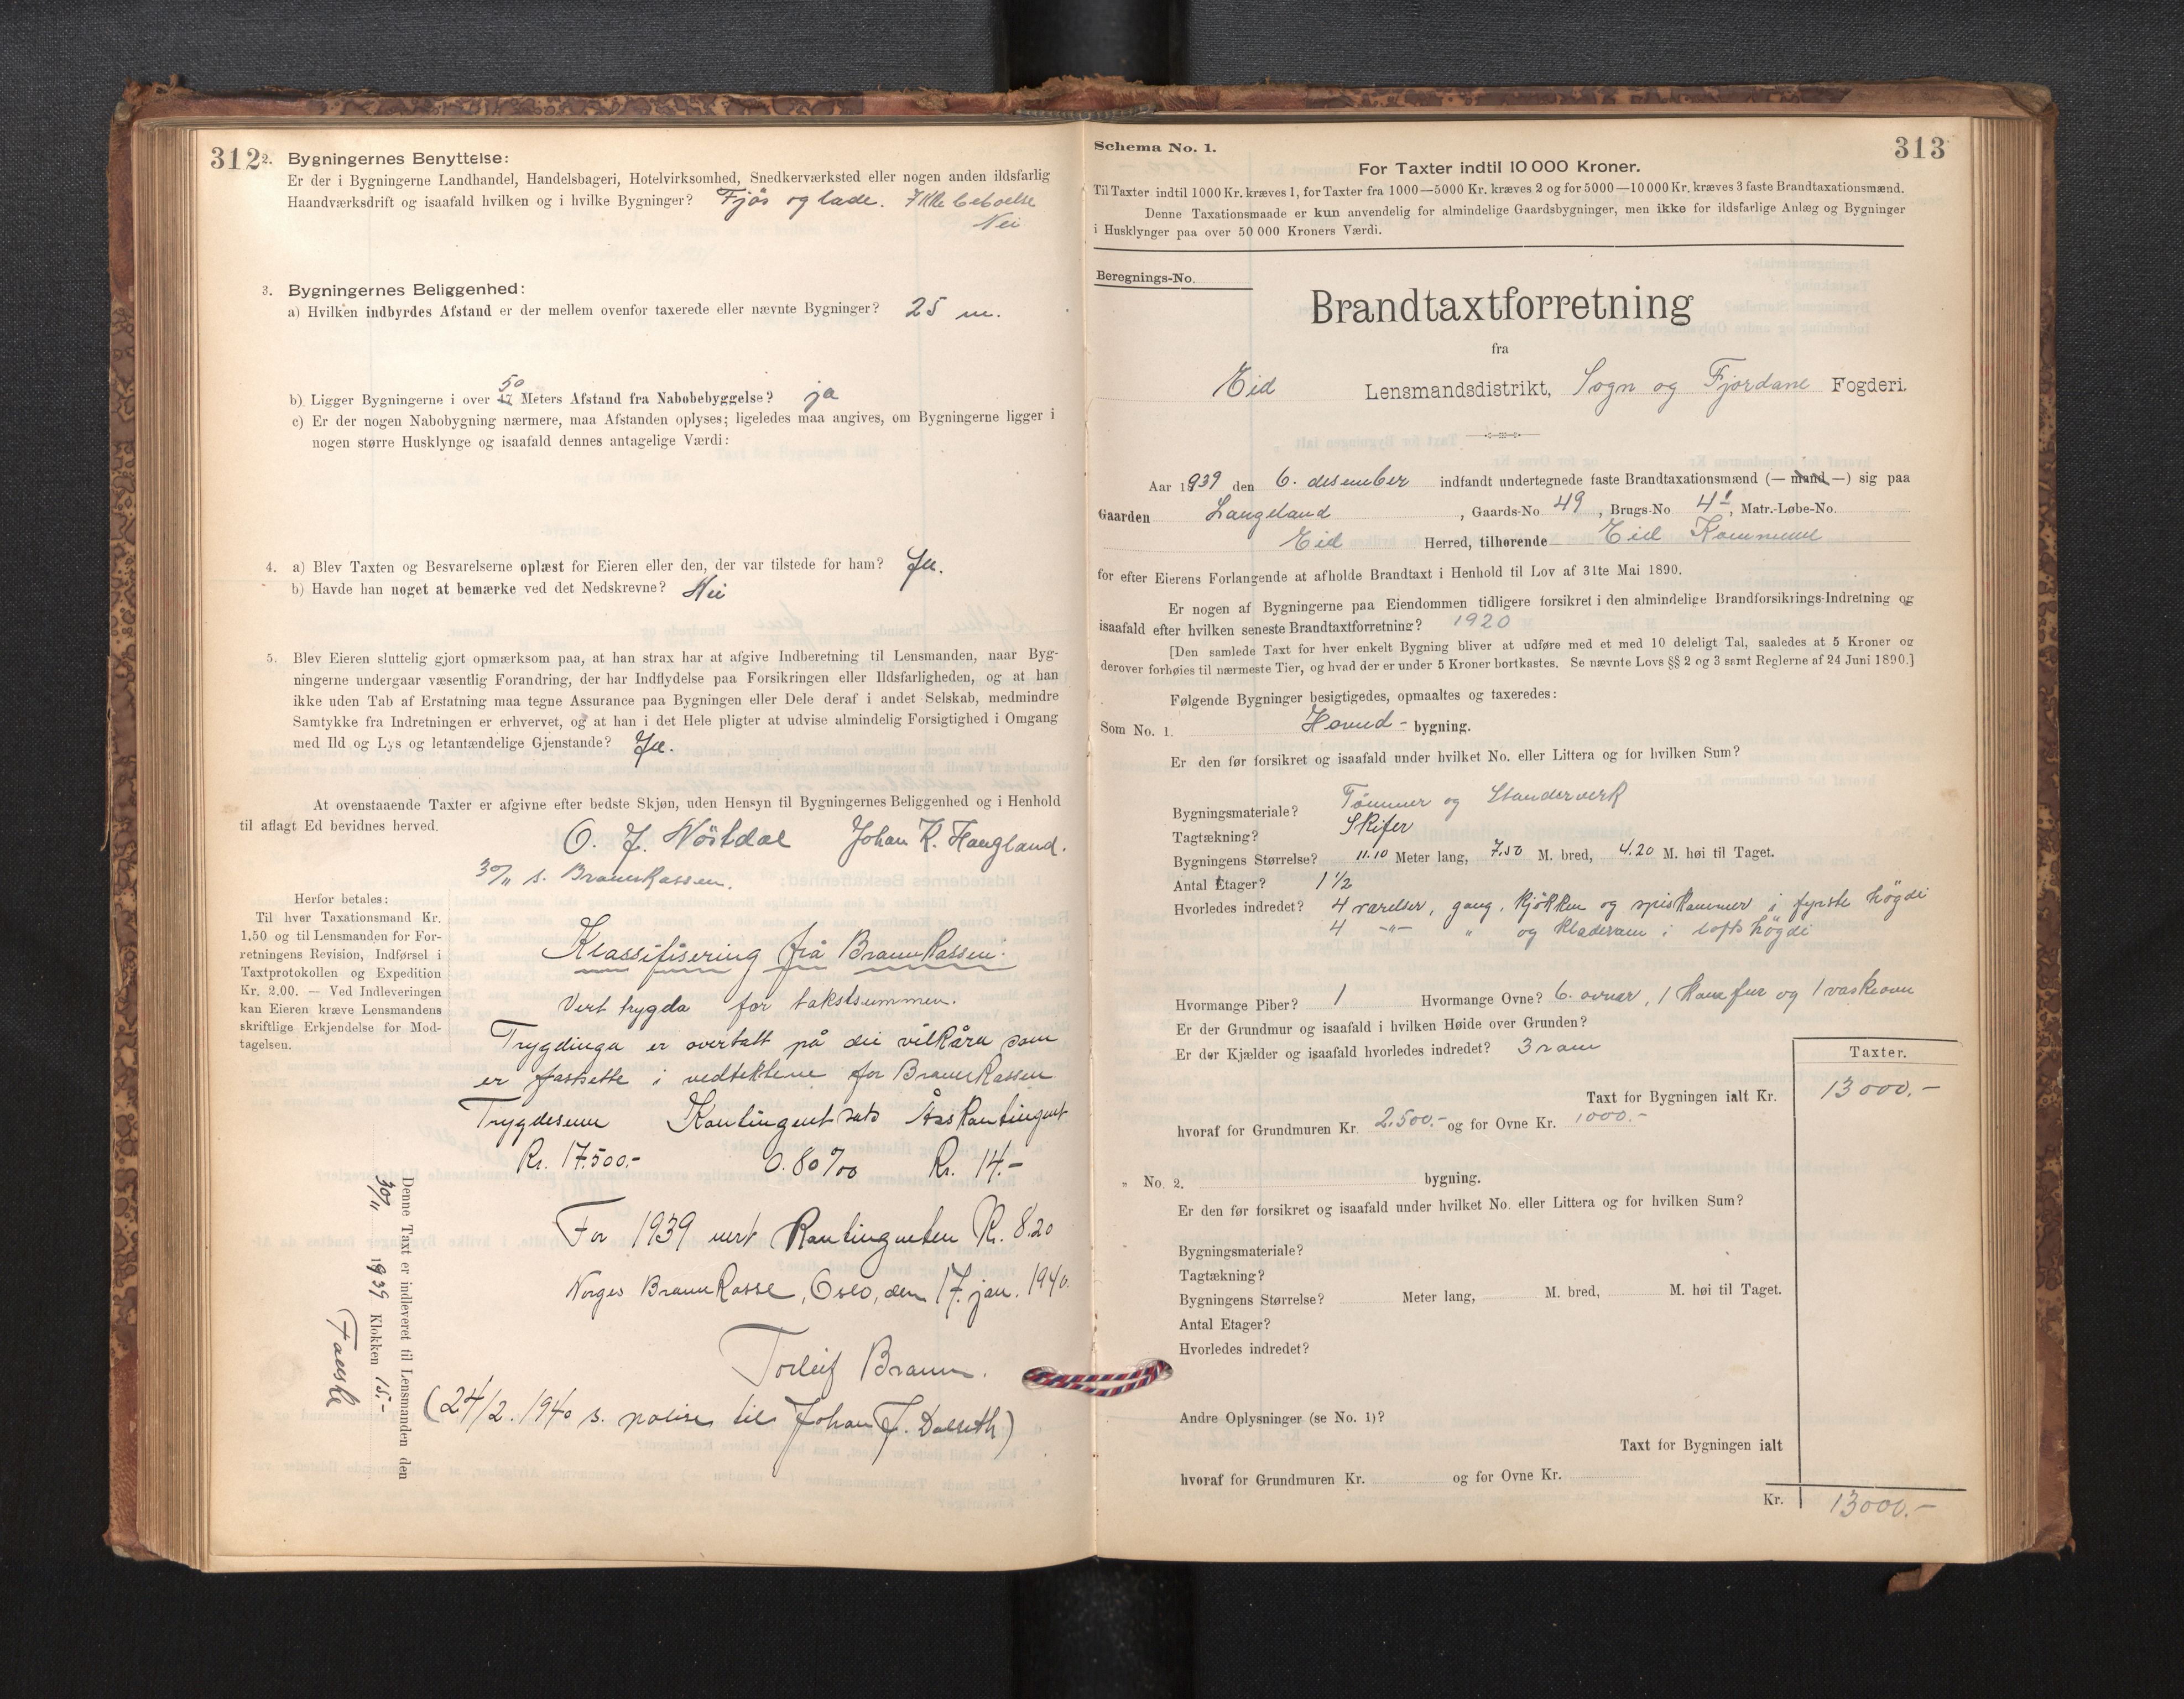 312
2. Bygningernes Benyttelse:
Er der i Bygningerne Landhandel, Handelsbageri, Hotelvirksomhed, Snedkerværksted eller nogen anden ildsfarlig
Haandværksdrift og isaafald hvilken og i hvilke Bygninger? Fjös og lade. Ikke beboelse
Nei
3. Bygningernes Beliggenhed:
a) Hvilken indbyrdes Afstand er der mellem ovenfor taxerede eller nævnte Bygninger? 25 m.
50
b) Ligger Bygningerne i over Meters Afstand fra Nabobebyggelse? ja
c) Er der nogen Nabobygning nærmere, maa Afstanden oplyses; ligeledes maa angives, om Bygningerne ligger i
nogen større Husklynge og isaafald dennes antagelige Værdi:
4. a) Blev Taxten og Besvarelserne oplæst for Eieren eller den, der var tilstede for ham? Ja.
b) Havde han noget at bemærke ved det Nedskrevne? Nei
5. Blev Eieren sluttelig gjort opmærksom paa, at han strax har at afgive Indberetning til Lensmanden, naar Byg-
ningerne undergaar væsentlig Forandring, der har Indflydelse paa Forsikringen eller Ildsfarligheden, og at han
ikke uden Tab af Erstatning maa tegne Assurance paa Bygningen eller Dele deraf i andet Selskab, medmindre
Samtykke fra Indretningen er erhvervet, og at han i det Hele pligter at udvise almindelig Forsigtighed i Omgang
med Ild og Lys og letantændelige Gjenstande? Ja.
At ovenstaaende Taxter er afgivne efter bedste Skjøn, uden Hensyn til Bygningernes Beliggenhed og i Henhold
til aflagt Ed bevidnes herved.
O. J. Nöstdal Johan K. Haugland.
30/11 s. Brannkassen.
Herfor betales:
Til hver Taxationsmand Kr.
1.50 og til Lensmanden for For-
retningens Revision, Indførsel i
Taxtprotokollen og Expedition
Kr. 2.00. — Ved Indleveringen
kan Eieren kræve Lensmandens
skriftlige Erkjendelse for Mod-
tagelsen.
Klassifisering frå Brannkassen:
Vert trygda for takstsummen.
Trygdinga er overtatt på dei vilkåra som
er fastsette i vedtektene for Brannkassen
Trygdesum Kontingentsats Årskontingent
Kr. 17.500.- 0.80 ‰ Kr. 14.-
For 1939 vert Kontingenten Kr. 8.20
Norges Brannkasse, Oslo, den 17. jan. 1940.
Torleif Brann.
(24/2. 1940 s. polise til Johan J. Dalseth)
Denne Taxt er indleveret til Lensmanden den
30/11 1939 Klokken 15.-
313
Schema No. 1.
For Taxter indtil 10 000 Kroner.
Til Taxter indtil 1000 Kr. kræves 1, for Taxter fra 1000—5000 Kr. kræves 2 og for 5000—10 000 Kr. kræves 3 faste Brandtaxationsmænd.
Denne Taxationsmaade er kun anvendelig for almindelige Gaardsbygninger, men ikke for ildsfarlige Anlæg og Bygninger
i Husklynger paa over 50 000 Kroners Værdi.
Beregnings-No.
Brandtaxtforretning
fra
Eid Lensmandsdistrikt, Sogn og Fjordane Fogderi.
Aar 1939 den 6. desember indfandt undertegnede faste Brandtaxationsmænd (— mand —) sig paa
Gaarden Langeland, Gaards-No 49, Brugs-No 4, Matr.-Løbe-No.
Eid Herred, tilhørende Eid Kommune
for efter Eierens Forlangende at afholde Brandtaxt i Henhold til Lov af 31te Mai 1890.
Er nogen af Bygningerne paa Eiendommen tidligere forsikret i den almindelige Brandforsikrings-Indretning og
isaafald efter hvilken seneste Brandtaxtforretning? 1920
[Den samlede Taxt for hver enkelt Bygning bliver at udføre med et med 10 deleligt Tal, saaledes at 5 Kroner og
derover forhøies til nærmeste Tier, og hvad der er under 5 Kroner bortkastes. Se nævnte Lovs §§ 2 og 3 samt Reglerne af 24 Juni 1890.]
Følgende Bygninger besigtigedes, opmaaltes og taxeredes:
Som No. 1. Hovud- bygning.
Er den før forsikret og isaafald under hvilket No. eller Littera og for hvilken Sum?
Bygningsmateriale? Tömmer og Standerverk
Tagtækning? Skifer
Bygningens Størrelse? 11.10 Meter lang, 7.50 M. bred, 4.20 M. høi til Taget.
Antal Etager? 1 1/2
Hvorledes indredet? 4 værelser, gang, kjökken og spiskammer i fyrste högdi
4 -"- " og kladerom i lofts högdi
Hvormange Piber? 1 Hvormange Ovne? 6. ovnar, 1 komfur og 1 vaskeovn
Er der Grundmur og isaafald i hvilken Høide over Grunden?
Er der Kjælder og isaafald hvorledes indredet? 3 rom
Taxter.
Taxt for Bygningen ialt Kr. 13000.-
hvoraf for Grundmuren Kr. 2.500.- og for Ovne Kr. 1000.-
" No. 2. bygning.
Er den før forsikret og isaafald under hvilket No. eller Littera og for hvilken Sum?
Bygningsmateriale?
Tagtækning?
Bygningens Størrelse? Meter lang, M. bred, M. høi til Taget.
Antal Etager?
Hvorledes indredet?
Andre Oplysninger (se No. 1)?
Taxt for Bygningen ialt
hvoraf for Grundmuren Kr. og for Ovne Kr.
Kr. 13000.-